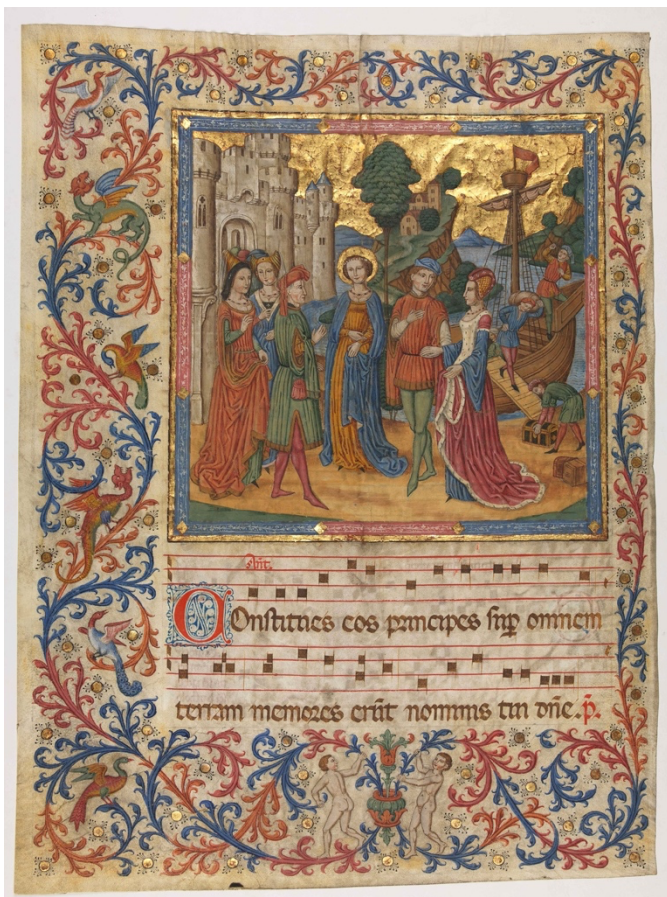 COnstitues eos principes sup̄ omnem
terram memores erūt nominis tui dn̄e. p̄.